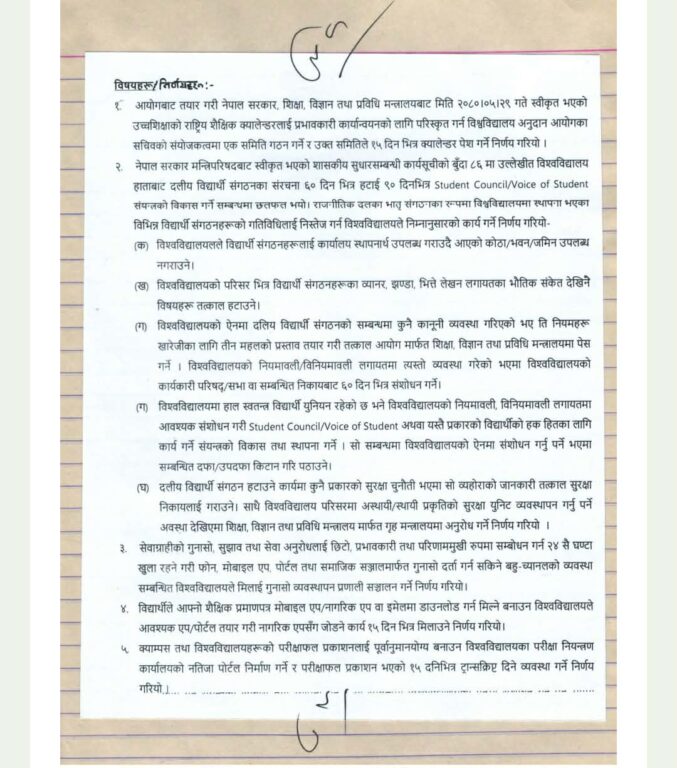 विषयहरू/निर्णयहरू:-
१. आयोगबाट तयार गरी नेपाल सरकार, शिक्षा, विज्ञान तथा प्रविधि मन्त्रालयबाट मिति २०८०।०५।२९ गते स्वीकृत भएको
उच्चशिक्षाको राष्ट्रिय शैक्षिक क्यालेन्डरलाई प्रभावकारी कार्यान्वयनको लागि परिस्कृत गर्न विश्वविद्यालय अनुदान आयोगका
सचिवको संयोजकत्वमा एक समिति गठन गर्ने र उक्त समितिले १५ दिन भित्र क्यालेन्डर पेश गर्ने निर्णय गरियो ।
२. नेपाल सरकार मन्त्रिपरिषदबाट स्वीकृत भएको शासकीय सुधारसम्बन्धी कार्यसूचीको बुँदा ८६ मा उल्लेखीत विश्वविद्यालय
हाताबाट दलीय विद्यार्थी संगठनका संरचना ६० दिन भित्र हटाई ९० दिनभित्र Student Council/Voice of Student
संयन्त्रको विकास गर्ने सम्बन्धमा छलफल भयो। राजनीतिक दलका भातृ संगठनका रूपमा विश्वविद्यालयमा स्थापना भएका
विभिन्न विद्यार्थी संगठनहरूको गतिविधिलाई निस्तेज गर्न विश्वविद्यालयले निम्नानुसारको कार्य गर्ने निर्णय गरियो-
(क) विश्वविद्यालयलले विद्यार्थी संगठनहरूलाई कार्यालय स्थापनार्थ उपलब्ध गराउदै आएको कोठा/भवन/जमिन उपलब्ध
नगराउने।
(ख) विश्वविद्यालयको परिसर भित्र विद्यार्थी संगठनहरूका व्यानर, झण्डा, भित्ते लेखन लगायतका भौतिक संकेत देखिने
विषयहरू तत्काल हटाउने।
(ग) विश्वविद्यालयको ऐनमा दलिय विद्यार्थी संगठनको सम्बन्धमा कुनै कानूनी व्यवस्था गरिएको भए ति नियमहरू
खारेजीका लागि तीन महलको प्रस्ताव तयार गरी तत्काल आयोग मार्फत शिक्षा, विज्ञान तथा प्रविधि मन्त्रालयमा पेस
गर्ने । विश्वविद्यालयको नियमावली/विनियमावली लगायतमा त्यस्तो व्यवस्था गरेको भएमा विश्वविद्यालयको
कार्यकारी परिषद्/सभा वा सम्बन्धित निकायबाट ६० दिन भित्र संशोधन गर्ने।
(ग) विश्वविद्यालयमा हाल स्वतन्त्र विद्यार्थी युनियन रहेको छ भने विश्वविद्यालयको नियमावली, विनियमावली लगायतमा
आवश्यक संशोधन गरी Student Council/Voice of Student अथवा यस्तै प्रकारको विद्यार्थीको हक हितका लागि
कार्य गर्ने संयन्त्रको विकास तथा स्थापना गर्ने । सो सम्बन्धमा विश्वविद्यालयको ऐनमा संशोधन गर्नु पर्ने भएमा
सम्बन्धित दफा/उपदफा किटान गरि पठाउने।
(घ) दलीय विद्यार्थी संगठन हटाउने कार्यमा कुनै प्रकारको सुरक्षा चुनौती भएमा सो व्यहोराको जानकारी तत्काल सुरक्षा
निकायलाई गराउने। साथै विश्वविद्यालय परिसरमा अस्थायी/स्थायी प्रकृतिको सुरक्षा युनिट व्यवस्थापन गर्नु पर्ने
अवस्था देखिएमा शिक्षा, विज्ञान तथा प्रविधि मन्त्रालय मार्फत गृह मन्त्रालयमा अनुरोध गर्ने निर्णय गरियो ।
३. सेवाग्राहीको गुनासो, सुझाव तथा सेवा अनुरोधलाई छिटो, प्रभावकारी तथा परिणाममुखी रुपमा सम्बोधन गर्न २४ सै घण्टा
खुला रहने गरी फोन, मोबाइल एप, पोर्टल तथा समाजिक सञ्जालमार्फत गुनासो दर्ता गर्न सकिने बहु-च्यानलको व्यवस्था
सम्बन्धित विश्वविद्यालयले मिलाई गुनासो व्यवस्थापन प्रणाली सञ्चालन गर्ने निर्णय गरियो।
४. विद्यार्थीले आफ्नो शैक्षिक प्रमाणपत्र मोबाइल एप/नागरिक एप वा इमेलमा डाउनलोड गर्न मिल्ने बनाउन विश्वविद्यालयले
आवश्यक एप/पोर्टल तयार गरी नागरिक एपसँग जोडने कार्य १५ दिन भित्र मिलाउने निर्णय गरियो।
५. क्याम्पस तथा विश्वविद्यालयहरूको परीक्षाफल प्रकाशनलाई पूर्वानुमानयोग्य बनाउन विश्वविद्यालयका परीक्षा नियन्त्रण
कार्यालयको नतिजा पोर्टल निर्माण गर्ने र परीक्षाफल प्रकाशन भएको १५ दनिभित्र ट्रान्सक्रिप्ट दिने व्यवस्था गर्ने निर्णय
गरियो।